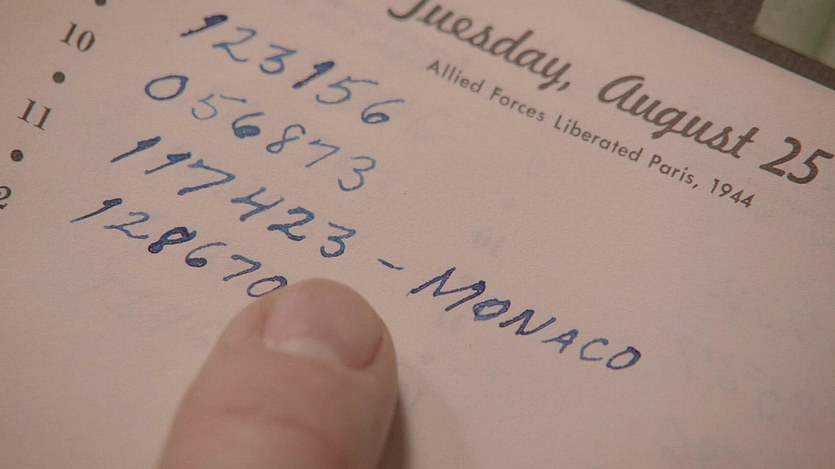 Tuesday, August 25
Allied Forces Liberated Paris, 1944
10
11
123156
056873
117423 - MONACO
128670